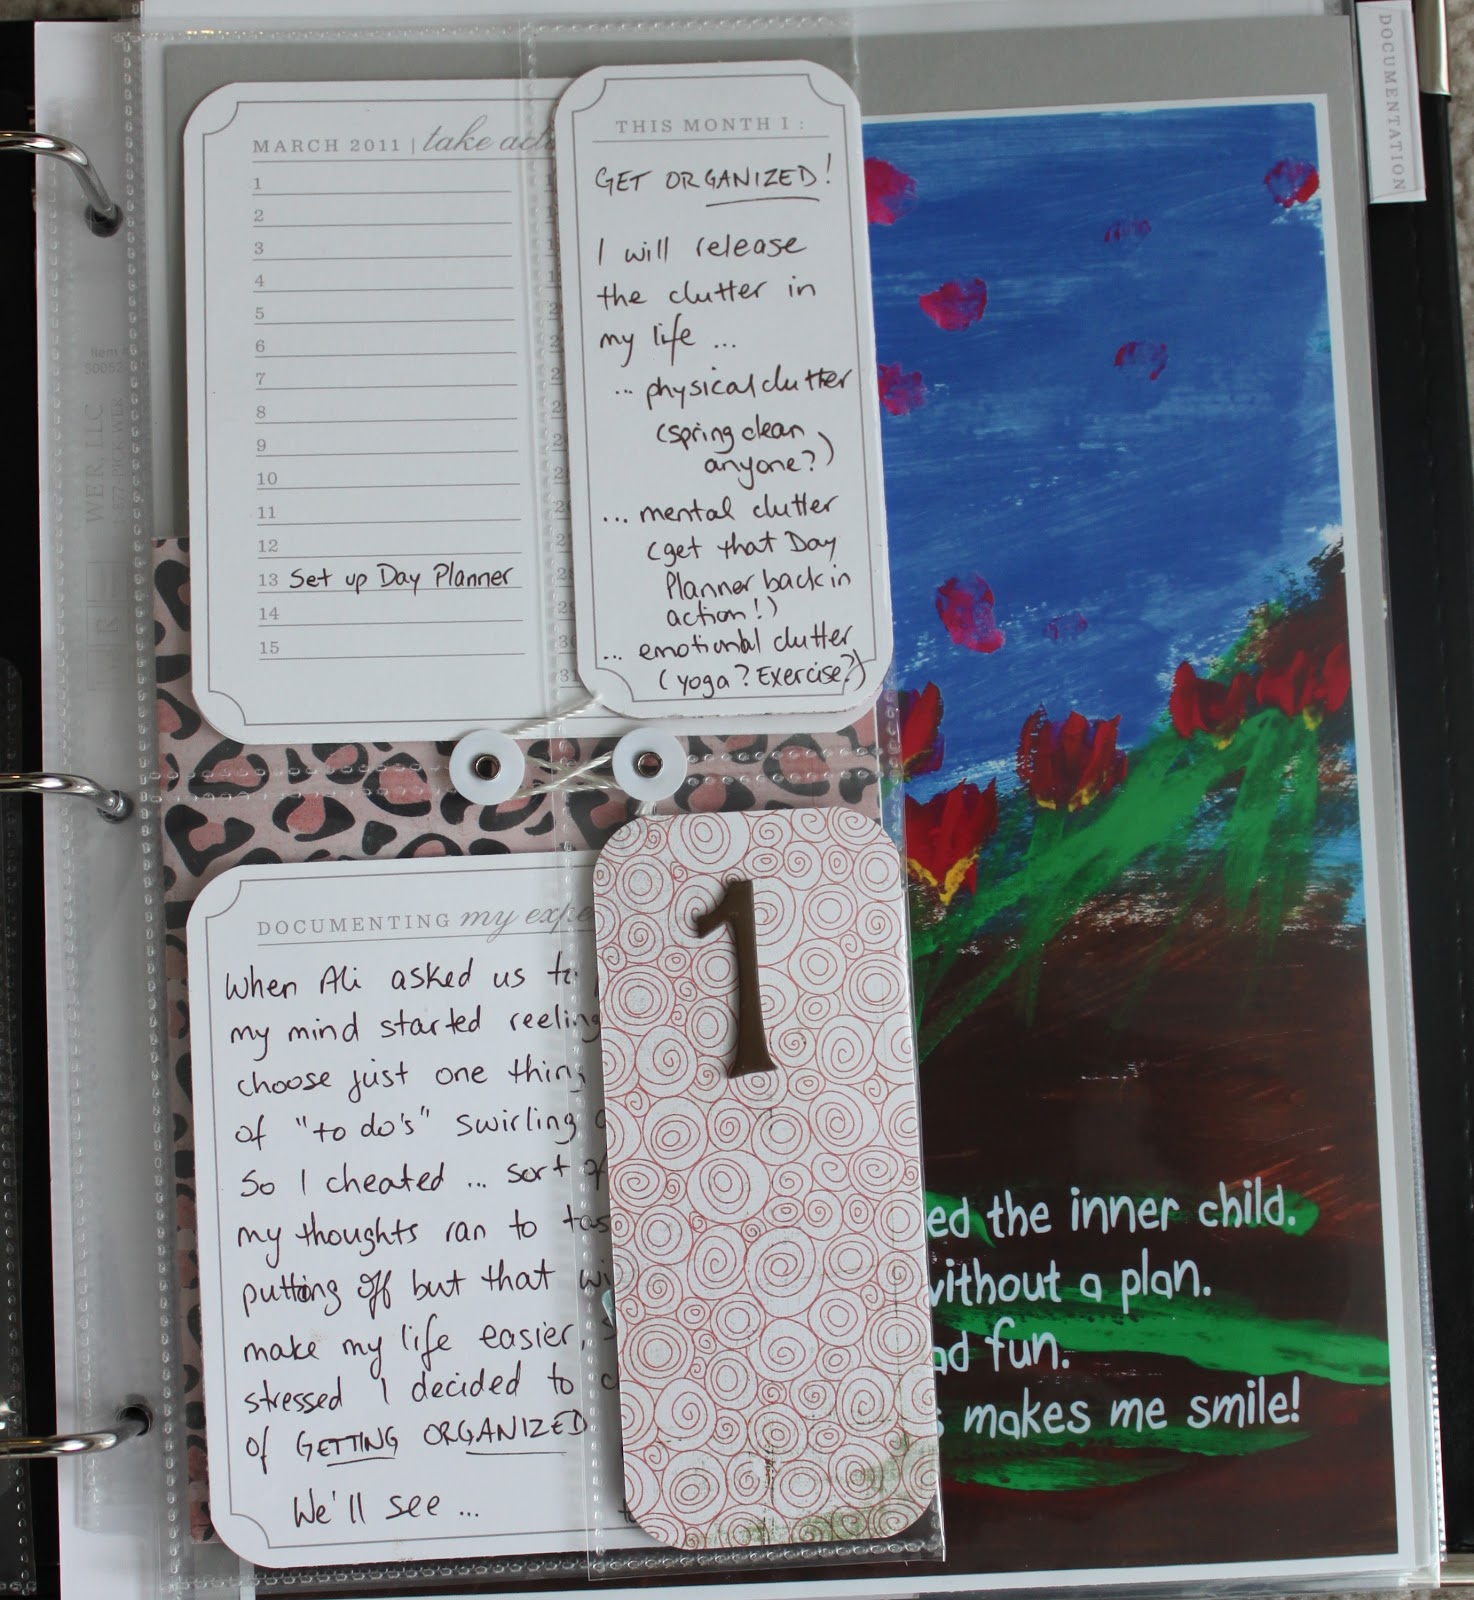 DOCUMENTATION
MARCH 2011 | take
1
2
3
4
5
6
7
8
9
10
11
12
13 Set up Day Planner
14
15
THIS MONTH I :
GET ORGANIZED!
I will release
the clutter in
my life ...
... physical clutter
(spring clean
anyone?)
... mental clutter
(get that Day
Planner back in
action!)
... emotional clutter
(yoga? Exercise?)
Item
WER LLC
1-877-PICK-WER
DOCUMENTING my
When Ali asked us
my mind started reeling
choose just one thing
of "to do's" swirling
So I cheated ... sort of
my thoughts ran to
putting off but that
make my life easier,
stressed I decided to
of GETTING ORGANIZED
We'll see ...
1
ed the inner child.
without a plan.
fun.
makes me smile!